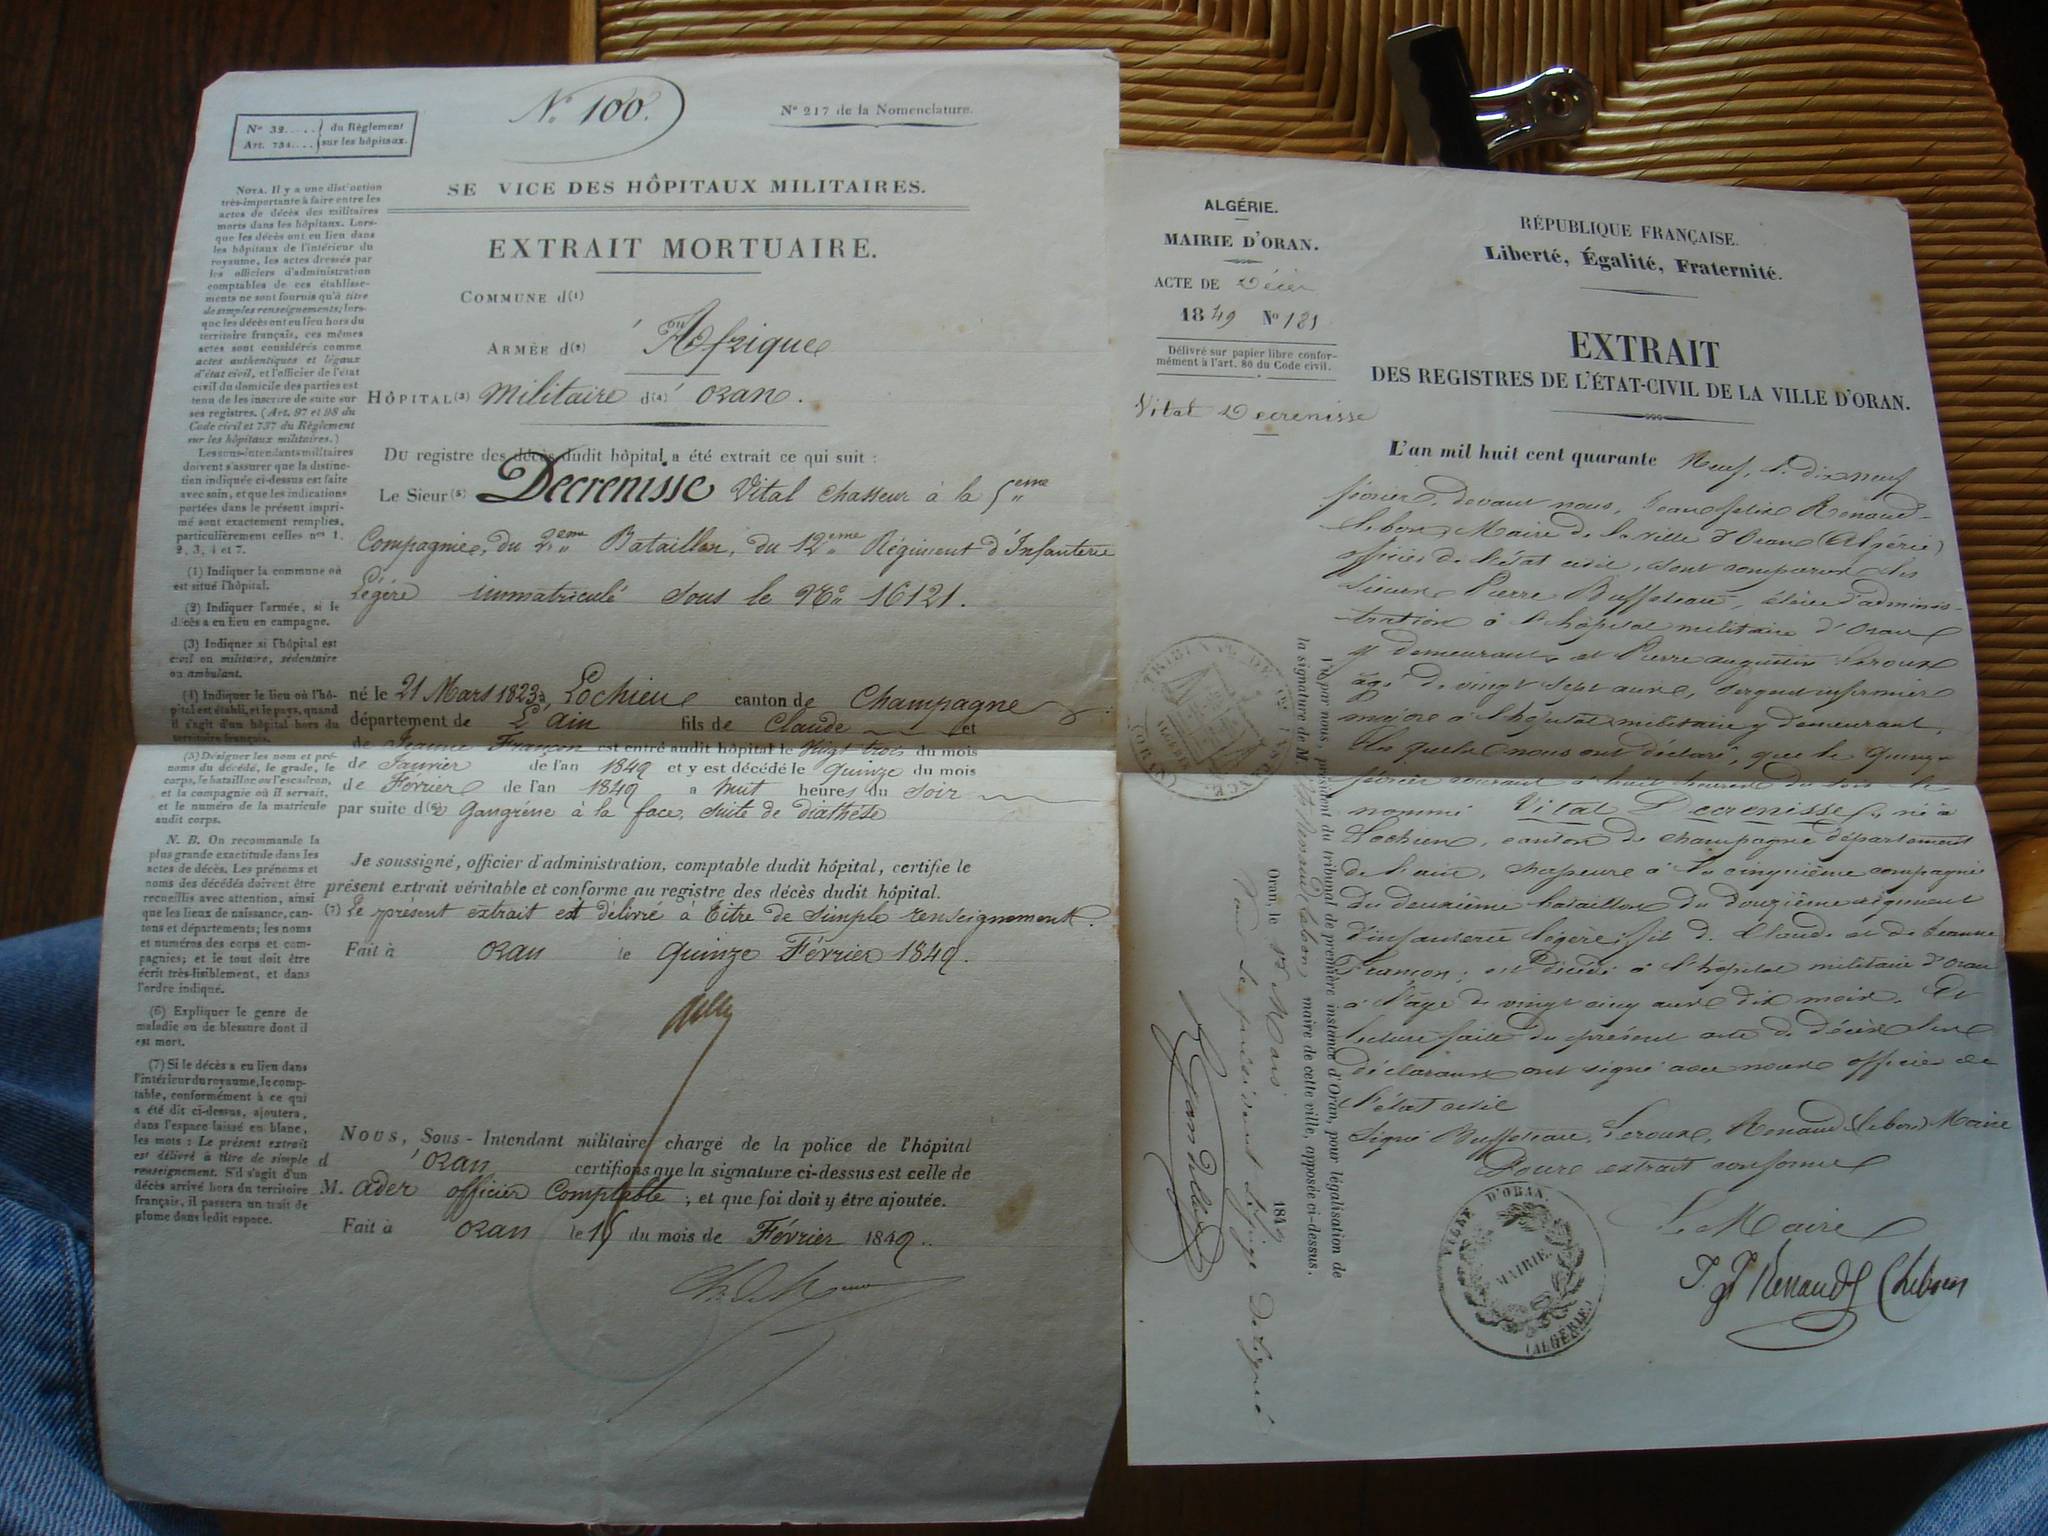 Nº 32..... } du Règlement
Art. 734.... } sur les hôpitaux.
Nº 100.
Nº 217 de la Nomenclature.
SE VICE DES HÔPITAUX MILITAIRES.
EXTRAIT MORTUAIRE.
COMMUNE d(1)
OU
ARMÉE d(2) 'Afrique
HÔPITAL(3) Militaire d(4) 'Oran.
Du registre des décès dudit hôpital a été extrait ce qui suit :
Le Sieur(5) Decrenisse Vital chasseur à la 5eme
Compagnie, du 2eme Bataillon, du 12eme Régiment d'Infanterie
Légère immatriculé sous le No 16121.
né le 21 Mars 1823 à Lochieu canton de Champagne
département de L'ain fils de Claude et
de Jeanne Françon est entré audit hôpital le Vingt trois du mois
de Janvier de l'an 1849 et y est décédé le quinze du mois
de Février de l'an 1849 a huit heures du soir
par suite d(6) Gangrène à la face, suite de diathèse
Je soussigné, officier d'administration, comptable dudit hôpital, certifie le
présent extrait véritable et conforme au registre des décès dudit hôpital.
(7) Le présent extrait est délivré à titre de simple renseignement.
Fait à Oran le quinze Février 1849.
Nous, Sous-Intendant militaire chargé de la police de l'hôpital
d 'Oran certifions que la signature ci-dessus est celle de
M. Ader officier Comptable ; et que foi doit y être ajoutée.
Fait à Oran le 15 du mois de Février 1849..
NOTA. Il y a une distinction
très-importante à faire entre les
actes de décès des militaires
morts dans les hôpitaux. Lors-
que les décès ont eu lieu dans
les hôpitaux de l'intérieur du
royaume, les actes dressés par
les officiers d'administration
comptables de ces établisse-
ments ne sont fournis qu'à titre
de simples renseignements; lors-
que les décès ont eu lieu hors du
territoire français, ces mêmes
actes sont considérés comme
actes authentiques et légaux
d'état civil, et l'officier de l'état
civil du domicile des parties est
tenu de les inscrire de suite sur
ses registres. (Art. 97 et 98 du
Code civil et 737 du Règlement
sur les hôpitaux militaires.)
Les sous-intendants militaires
doivent s'assurer que la distinc-
tion indiquée ci-dessus est faite
avec soin, et que les indications
portées dans le présent impri-
mé sont exactement remplies,
particulièrement celles nos 1,
2, 3, 4 et 7.
(1) Indiquer la commune où
est situé l'hôpital.
(2) Indiquer l'armée, si le
décès a eu lieu en campagne.
(3) Indiquer si l'hôpital est
civil ou militaire, sédentaire
ou ambulant.
(4) Indiquer le lieu où l'hô-
pital est établi, et le pays, quand
il s'agit d'un hôpital hors du
territoire français.
(5) Désigner les nom et pré-
noms du décédé, le grade, le
corps, le bataillon ou l'escadron,
et la compagnie où il servait,
et le numéro de la matricule
audit corps.
N. B. On recommande la
plus grande exactitude dans les
actes de décès. Les prénoms et
noms des décédés doivent être
recueillis avec attention, ainsi
que les lieux de naissance, can-
tons et départements; les noms
et numéros des corps et com-
pagnies; et le tout doit être
écrit très-lisiblement, et dans
l'ordre indiqué.
(6) Expliquer le genre de
maladie ou de blessure dont il
est mort.
(7) Si le décès a eu lieu dans
l'intérieur du royaume, le comp-
table, conformément à ce qui
a été dit ci-dessus, ajoutera,
dans l'espace laissé en blanc,
les mots : Le présent extrait
est délivré à titre de simple
renseignement. S'il s'agit d'un
décès arrivé hors du territoire
français, il passera un trait de
plume dans ledit espace.
ALGÉRIE.
MAIRIE D'ORAN.
ACTE DE Décès
1849 Nº 181
Délivré sur papier libre confor-
mément à l'art. 80 du Code civil.
Vital Decrenisse
RÉPUBLIQUE FRANÇAISE.
Liberté, Égalité, Fraternité.
EXTRAIT
DES REGISTRES DE L'ÉTAT-CIVIL DE LA VILLE D'ORAN.
L'an mil huit cent quarante Neuf, le dix neuf
février, devant nous, Jean felix Renaud-
Lebon, Maire de la ville d'Oran (Algérie)
officier de l'état civil, sont comparus les
sieurs Pierre Buffoteau, élève d'adminis-
tration à l'hôpital militaire d'Oran
y demeurant, et Pierre augustin Leroux
âgé de vingt sept ans, sergent infirmier
major à l'hôpital militaire y demeurant,
les quels nous ont déclaré, que le quinze
février courant à huit heures du soir le
nommé Vital Decrenisse, né à
Lochieu, canton de champagne département
de l'ain, chasseur à la cinquième compagnie
du deuxième bataillon du douzième régiment
d'infanterie légère, fils de Claude et de Jeanne
Françon; est décédé à l'hôpital militaire d'Oran
à l'âge de vingt cinq ans dix mois. Et
lecture faite du présent acte de décès les
déclarants ont signé avec nous officier de
l'état civil
Signé Buffoteau, Leroux, Renaud Lebon Maire
Pour extrait conforme
Le Maire
J. F. Renaud Lebon
VILLE D'ORAN.
MAIRIE
(ALGÉRIE)
TRIBUNAL DE 1RE INSTANCE.
(ORAN)
Vu par nous, président du tribunal de première instance d'Oran, pour légalisation de
la signature de M. Renaud Lebon, maire de cette ville, apposée ci-dessus.
Oran, le Mars 1849
Pour le président